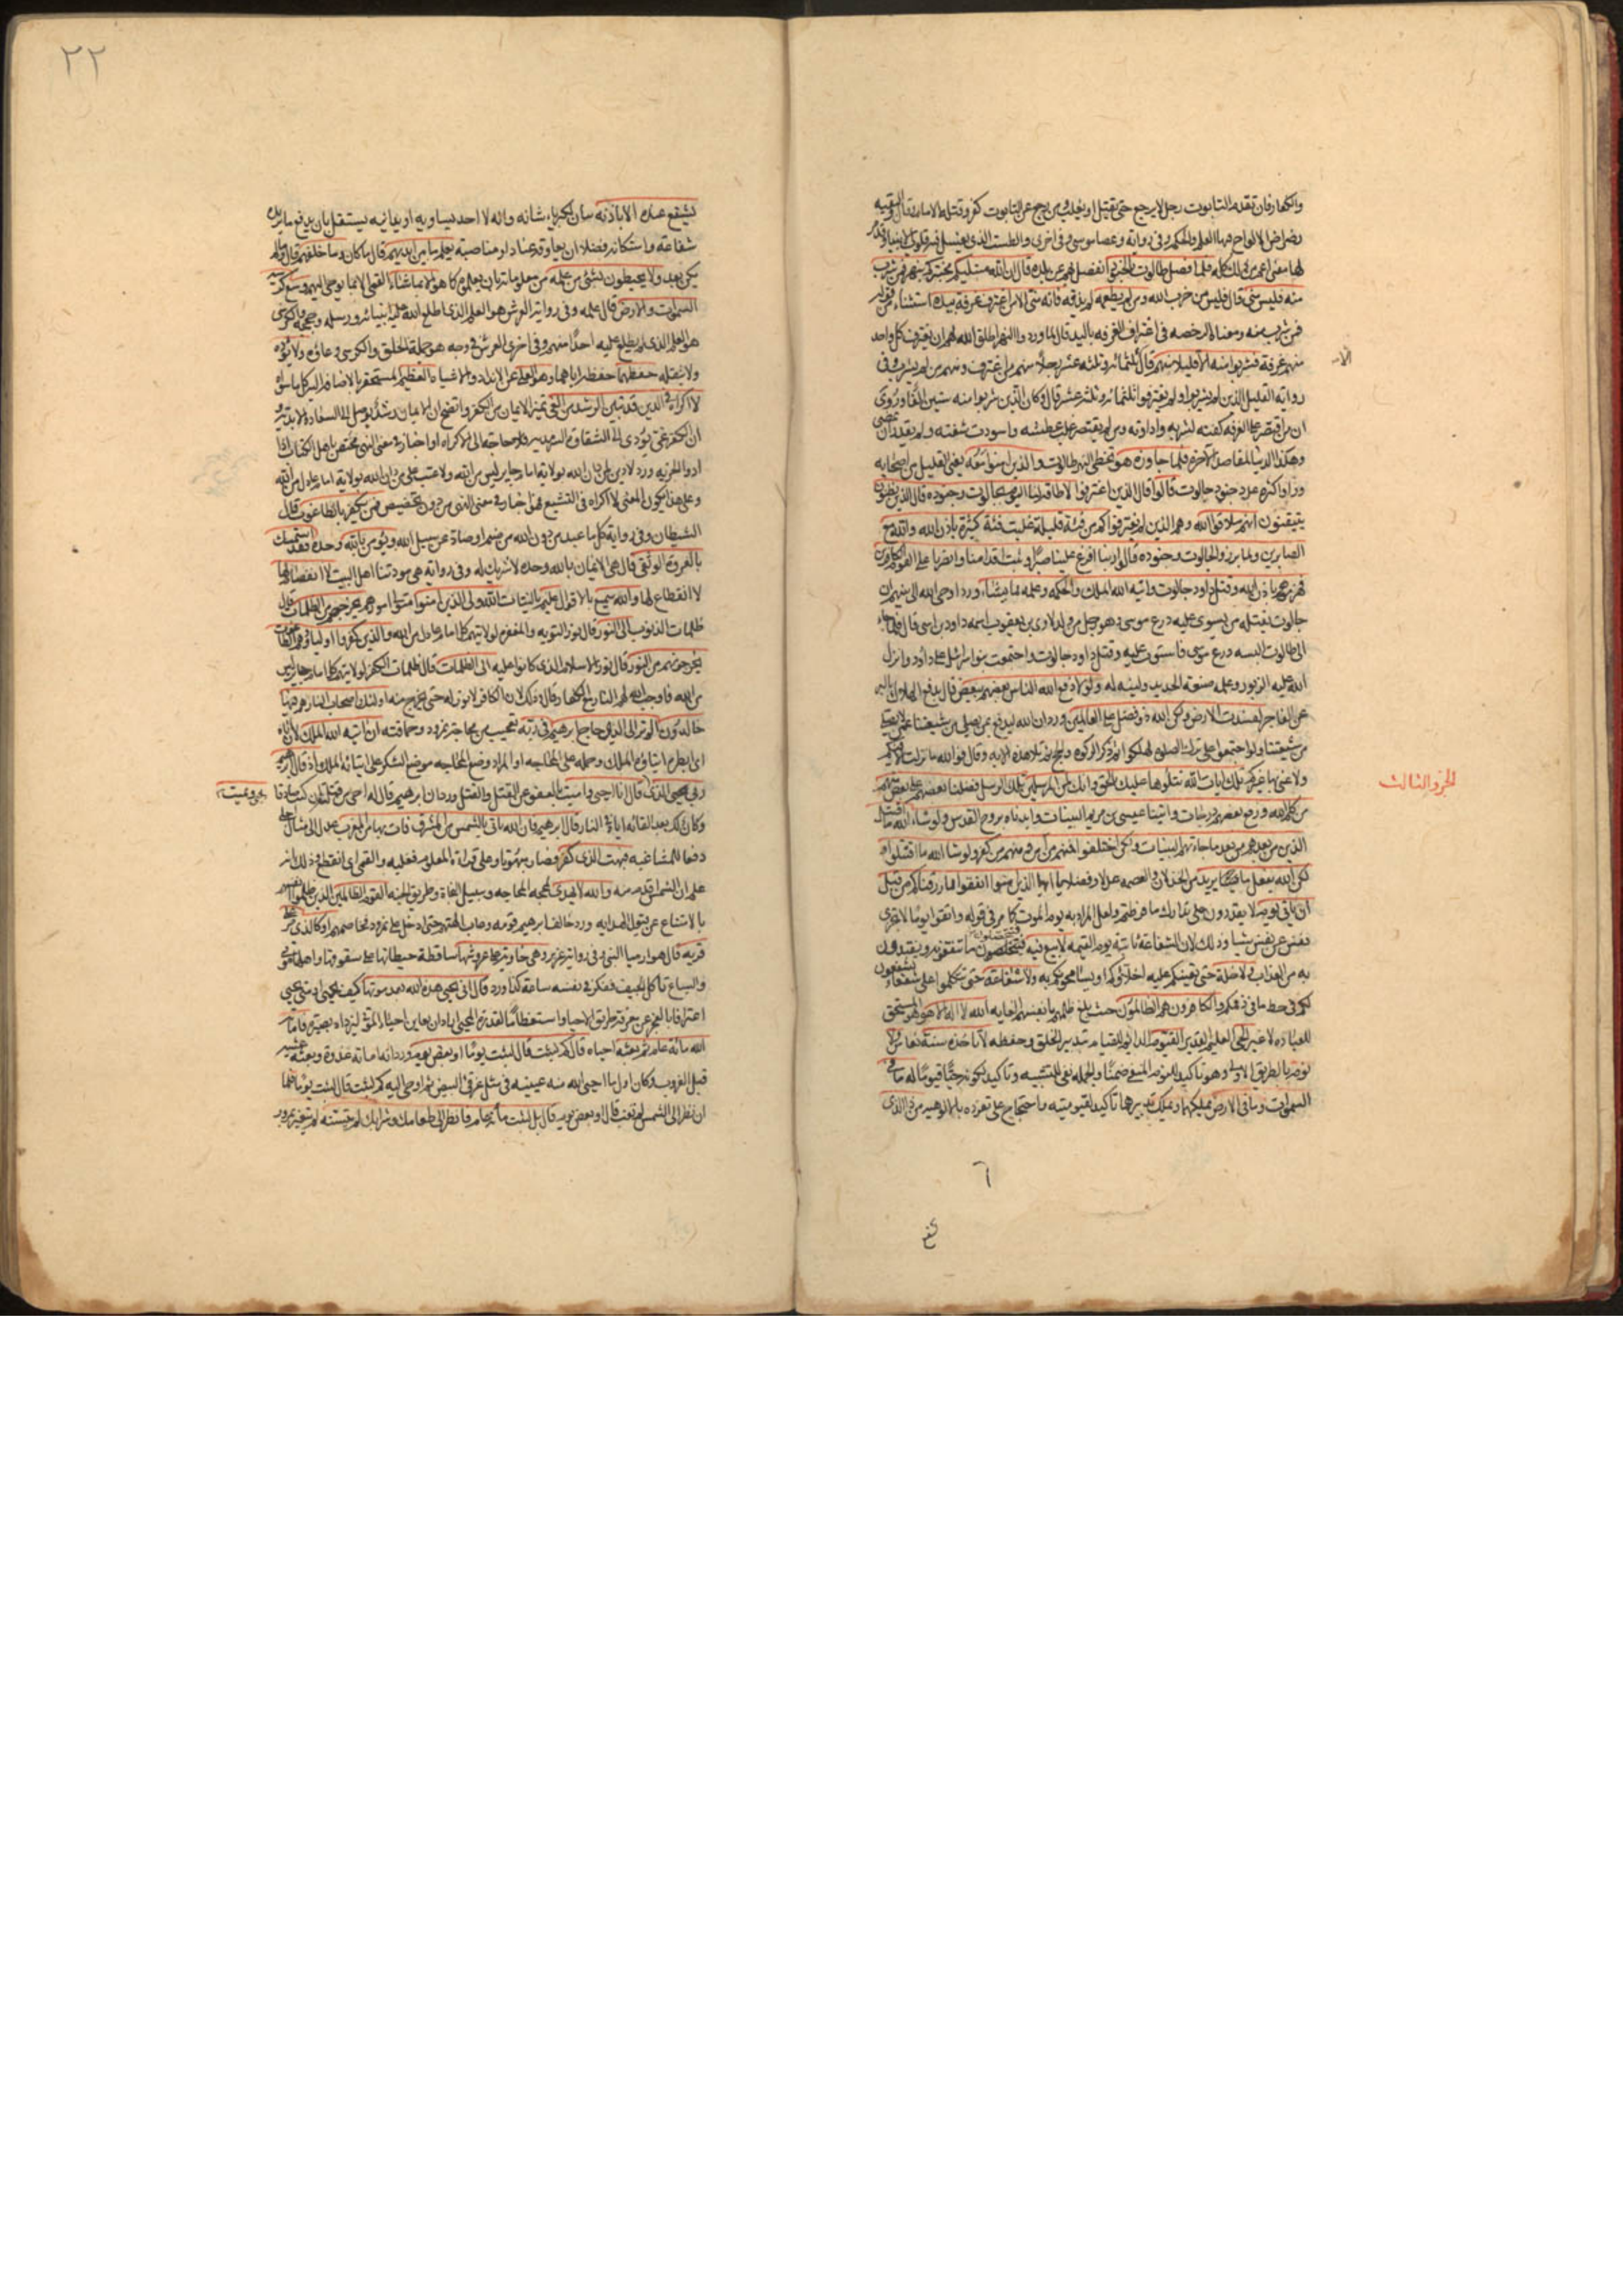 والكفار فان تقدم التابوت رجل لا يرجع حتى يقتل او يغلب ومن رجع عن التابوت كفر وقتله الامام قال البقية
رضراض الالواح فيها العلم والحكمة وفى رواية وعصا موسى وفى اخرى والطست الذى يغسل فيه قلوب الانبياء
فلما فصل طالوت بالجنود انفصل بهم عن بلده قال ان الله مبتليكم بنهر فمن شرب
منه فليس منى قال فليس من حزب الله ومن لم يطعمه لم يذقه فانه منى الا من اغترف غرفة بيده استثناء من قوله
فمن شرب منه ومعناه الرخصة فى اغتراف الغرفة باليد قال لما وردوا النهر اطلق الله لهم ان يغترف كل واحد
منهم غرفة فشربوا منه الا قليلا منهم قال ثلثمائة وثلثة عشر رجلا منهم من اغترف ومنهم من لم يشرب وفى
رواية القليل الذين لم يشربوا ولم يغترفوا ثلثمائة وثلثة عشر قال وكان الذين شربوا منه ستين الفا وروى
ان من اقتصر على الغرفة كفته لشربه واداوته ومن لم يقتصر غلب عطشه واسودت شفته ولم يقدر ان يمضى
وهكذا الدنيا لقاصد الاخرة فلما جاوزه هو تخطى النهر طالوت والذين امنوا معه يعنى القليل من اصحابه
وراوا كثرة عدد جنود جالوت قالوا قال الذين اغترفوا لا طاقة لنا اليوم بجالوت وجنوده قال الذين يظنون
يتيقنون انهم ملاقوا الله وهم الذين لم يغترفوا كم من فئة قليلة غلبت فئة كثيرة باذن الله والله مع
الصابرين ولما برزوا لجالوت وجنوده قالوا ربنا افرغ علينا صبرا وثبت اقدامنا وانصرنا على القوم الكافرين
فهزموهم باذن الله وقتل داود جالوت واتيه الله الملك والحكمة وعلمه مما يشاء ورد اوحى الله الى نبيهم ان
جالوت يقتله من يسوى عليه درع موسى وهو رجل من ولد لاوى بن يعقوب اسمه داود بن اسى قال فلما جاء
الى طالوت البسه درع موسى فاستوت عليه وقتل داود جالوت واجتمعت بنو اسرائيل على داود وانزل
الله عليه الزبور وعلمه صنعة الحديد ولينه له ولولا دفع الله الناس بعضهم ببعض قال يدفع الهلاك بالبر
عن الفاجر لفسدت الارض ولكن الله ذو فضل على العالمين ورد ان الله ليدفع بمن يصلى من شيعتنا عمن لا يصلى
من شيعتنا ولو اجتمعوا على ترك الصلوة لهلكوا ثم ذكر الزكوة والحج ثم تلا هذه الاية وقال فوالله ما نزلت الا فيكم
ولا عنى بها غيركم تلك ايات الله نتلوها عليك بالحق وانك لمن المرسلين تلك الرسل فضلنا بعضهم على بعض منهم
من كلم الله ورفع بعضهم درجات واتينا عيسى بن مريم البينات وايدناه بروح القدس ولو شاء الله ما اقتتل
الذين من بعدهم من بعد ما جاءتهم البينات ولكن اختلفوا فمنهم من امن ومنهم من كفر ولو شاء الله ما اقتتلوا و
لكن الله يفعل ما يريد من الخذلان والعصمة عدلا وفضلا يا ايها الذين امنوا انفقوا مما رزقناكم من قبل
ان ياتى يوم لا يقدرون على تدارك ما فرطتم ولعل المراد به يوم الموت كما مر فى قوله واتقوا يوما لا تجزى
نفس عن نفس شيئا وذلك لان الشفاعة ثابتة يوم القيمة لا بيع فيه فتحصلون ما تنفقونه وتفتدون
به من العذاب ولا خلة حتى يعينكم عليه اخلاؤكم او يسامحوكم به ولا شفاعة حتى تتكلوا على شفعاء يشفعون
لكم فى حط ما فى ذممكم والكافرون هم الظالمون حيث بلغ ظلمهم انفسهم الغاية الله لا اله الا هو هو المستحق
للعبادة لا غير الحى العليم القدير القيوم الدائم القيام بتدبير الخلق وحفظه لا تاخذه سنة نعاس ولا
نوم بالطريق الاولى وهو تاكيد للنوم المنفى ضمنا والجملة نفى للتشبيه وتاكيد لكونه حيا قيوما له ما فى
السموات وما فى الارض يملكها ويملك تدبيرها تاكيد لقيوميته واحتجاج على تفرده بالالوهية من ذا الذى
الجزو الثالث
٢٢
يشفع عنده الا باذنه بيان لكبرياء شانه وانه لا احد يساويه او يدانيه يستقل بان يدفع ما يريده
شفاعة واستكانة فضلا ان يعاوقه عنادا او مناصبة يعلم ما بين ايديهم قال ما كان وما خلفهم قال وما لم
يكن بعد ولا يحيطون بشئ من علمه من معلوماته الا بما شاء القمى الا بما يوحى اليهم وسع كرسيه
السموات والارض قال علمه وفى رواية العرش هو العلم الذى اطلع الله عليه انبيائه ورسله وحججه والكرسى
هو العلم الذى لم يطلع عليه احدا منهم وفى اخرى العرش فى وجه هو جملة الخلق والكرسى وعاؤه ولا يؤده
ولا يثقله حفظهما حفظه اياهما وهو العلى عن الانداد والاشباه العظيم المستحقر بالاضافة اليه كل ما سواه
لا اكراه فى الدين قد تبين الرشد من الغى تميز الايمان من الكفر واتضح ان الايمان رشد يوصل الى السعادة الابدية و
ان الكفر غى يؤدى الى الشقاوة السرمدية فلا حاجة الى الاكراه او اخبار فى معنى النهى مختص باهل الكتاب اذا
ادوا الجزية ورد لا دين لمن دان الله بولاية امام جاير ليس من الله ولا عتب على من دان الله بولاية امام عادل من الله
وعلى هذا يكون المعنى لا اكراه فى التشيع فهو اخبار فى معنى النهى من دون تخصيص فمن يكفر بالطاغوت قال
الشيطان وفى رواية كل ما عبد من دون الله من صنم او صاد عن سبيل الله ويؤمن بالله وحده فقد استمسك
بالعروة الوثقى قال هى الايمان بالله وحده لا شريك له وفى رواية هى مودتنا اهل البيت لا انفصام لها
لا انقطاع لها والله سميع بالاقوال عليم بالنيات الله ولى الذين امنوا متولى امورهم يخرجهم من الظلمات قال
ظلمات الذنوب الى النور قال نور التوبة والمغفرة لولايتهم كل امام عادل من الله والذين كفروا اولياؤهم الطاغوت
يخرجونهم من النور قال نور الاسلام الذى كانوا عليه الى الظلمات قال ظلمات الكفر لولايتهم كل امام جاير ليس
من الله فاوجب الله لهم النار مع الكفار وقال وذلك لان الكافر لا نور له حتى يخرج منه اولئك اصحاب النار هم فيها
خالدون الم تر الى الذى حاج ابرهيم فى ربه تعجيب من محاجة نمرود وحماقته ان اتيه الله الملك لان اتاه
اى ابطره ايتاؤه الملك وحمله على المحاجة او المراد وضع المحاجة موضع الشكر على ايتائه الملك اذ قال ابرهيم
ربى الذى يحيى ويميت قال انا احيى واميت بالعفو عن القتل والقتل ورد ان ابرهيم قال له احى من قتلته ان كنت صادقا
وكان ذلك بعد القائه اياه فى النار قال ابرهيم فان الله ياتى بالشمس من المشرق فات بها من المغرب عدل الى مثال اجلى
دفعا للمشاغبة فبهت الذى كفر فصار مبهوتا وعلى قراءة المعلوم فغلبه والقمى اى انقطع وذلك انه
علم ان الشمس اقدم منه والله لا يهدى لمحجة المحاجة وسبيل النجاة وطريق الجنة القوم الظالمين الذين ظلموا انفسهم
بالامتناع عن قبول الهداية ورد خالف ابرهيم قومه وعاب الهتهم حتى ادخل على نمرود فخاصمهم او كالذى مر على
قرية قال هو ارميا النبى وفى رواية عزير وهى خاوية على عروشها ساقطة حيطانها على سقوفها واهلها موتى
والسباع تاكل الجيف ففكر فى نفسه ساعة كذا ورد قال انى يحيى هذه الله بعد موتها كيف يحيى او متى يحيى
اعترافا بالعجز عن معرفة طريق الاحيا واستعظاما لقدرة المحيى اراد ان يعاين احياء الموتى ليزداد بصيرة فاماته
الله مائة عام ثم بعثه احياه قال كم لبثت قال لبثت يوما او بعض يوم ورد انه اماته غدوة وبعثه عشية
قبل الغروب وكان اول ما احيى الله منه عينيه فى مثل غرقئ البيض ثم اوحى اليه كم لبثت قال لبثت يوما فلما
ان نظر الى الشمس لم تغب قال او بعض يوم قال بل لبثت مائة عام فانظر الى طعامك وشرابك لم يتسنه لم يتغير بمرور